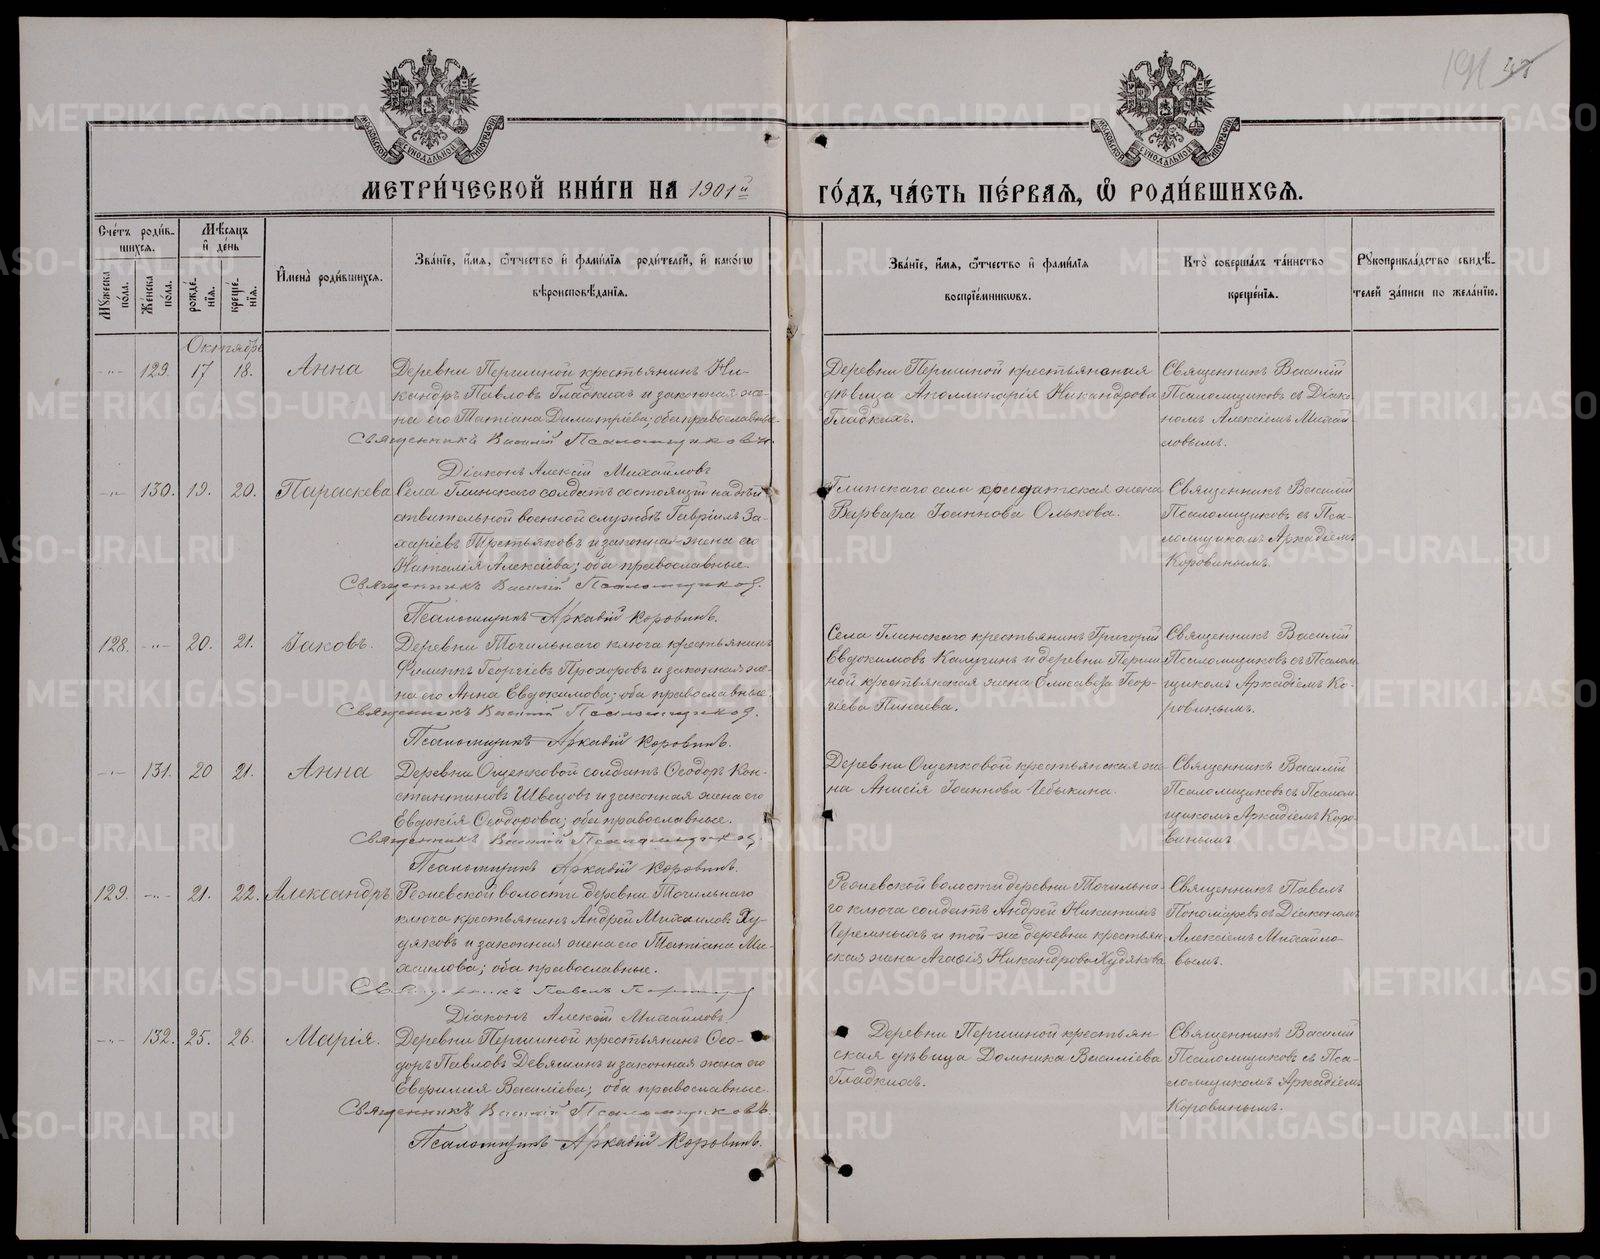 191 48
МЕТРИ́ЧЕСКОЙ КНИ́ГИ НА 1901й ГО́ДЪ, ЧА́СТЬ ПЕ́РВАѦ, Ѽ РОДИ́ВШИХСѦ.
Сче́тъ роди́в-
шихся.
Мужеска по́ла.
Же́нска по́ла.
Мѣ́сяцъ
и҆ де́нь
рожде́нія.
креще́нія.
И҆мена̀ роди́вшихся.
Зва́нїе, и҆́мя, ѻ҆́тчество и҆ фами́лїя роди́телей, и҆ како́гѡ
вѣроисповѣ́данїя.
Зва́нїе, и҆́мя, ѻ҆́тчество и҆ фами́лїя
воспрїе́мникѡвъ.
Кто̀ соверша́лъ та́инство
креще́нїя.
Рꙋкоприкла́дство свидѣ́-
телей за́писи по жела́нїю.
Октябрь
-"- 129. 17 18. Анна
Деревни Першиной крестьянинъ Ни-
кандръ Павловъ Гладкихъ и законная же-
на его Татіана Димитріева; оба православные.
Священникъ Василій Псаломщиковъ.
Діаконъ Алексій Михайловъ
Деревни Першиной крестьянская
дѣвица Аполлинарія Никандрова
Гладкихъ.
Священникъ Василій
Псаломщиковъ съ Діако-
номъ Алексіемъ Михай-
ловымъ.
-"- 130. 19. 20. Параскева
Села Глинскаго солдатъ состоящій на дѣй
ствительной военной службѣ Гавріилъ За-
харіевъ Третьяковъ и законная жена его
Наталія Алексіева; оба православные.
Священникъ Василій Псаломщиков.
Псаломщикъ Аркадій Коровинъ.
Глинскаго села солдатская жена
Варвара Іоаннова Олькова.
Священникъ Василій
Псаломщиковъ съ Пса-
ломщикомъ Аркадіемъ
Коровинымъ.
128. -"- 20. 21. Іаковъ.
Деревни Точильнаго ключа крестьянинъ
Филиппъ Георгіевъ Прохоровъ и законная же-
на его Анна Евдокимова; оба православные.
Священникъ Василій Псаломщиков.
Псаломщикъ Аркадій Коровинъ.
Села Глинскаго крестьянинъ Григорій
Евдокимовъ Калугинъ и деревни Перши
ной крестьянская жена Елисавета Геор-
гіева Пинаева.
Священникъ Василій
Псаломщиковъ съ Псалом-
щикомъ Аркадіемъ Ко-
ровинымъ.
-"- 131. 20 21. Анна
Деревни Ощепковой солдатъ Ѳеодоръ Кон-
стантиновъ Швецовъ и законная жена его
Евдокія Ѳеодорова; оба православные.
Священникъ Василій Псаломщиков
Псаломщикъ Аркадій Коровинъ.
Деревни Ощепковой крестьянская же-
на Анисія Іоаннова Чебыкина.
Священникъ Василій
Псаломщиковъ съ Псалом-
щикомъ Аркадіемъ Коро-
винымъ
129. -"- 21. 22. Александръ.
Режевской волости деревни Точильнаго
ключа крестьянинъ Андрей Михаиловъ Ху-
дяковъ и законная жена его Татіана Ми-
хаилова; оба православные.
Священникъ Павелъ Пономарев
Діаконъ Алексій Михайловъ
Режевской волости деревни Точильна-
го ключа солдатъ Андрей Никитинъ
Черемныхъ и той-же деревни крестьян
ская жена Агафія Никандрова Худякова
Священникъ Павелъ
Пономаревъ съ Діакономъ
Алексіемъ Михайло-
вымъ.
-"- 132. 25. 26. Марія.
Деревни Першиной крестьянинъ Ѳео-
доръ Павловъ Девяшинъ и законная жена его
Евфимія Василіева; оба православные.
Священникъ Василій Псаломщиковъ.
Псаломщикъ Аркадій Коровинъ.
Деревни Першиной крестьян-
ская дѣвица Домника Василіева
Гладкихъ.
Священникъ Василій
Псаломщиковъ съ Пса-
ломщикомъ Аркадіемъ
Коровинымъ.
METRIKI.GASO-URAL.RU